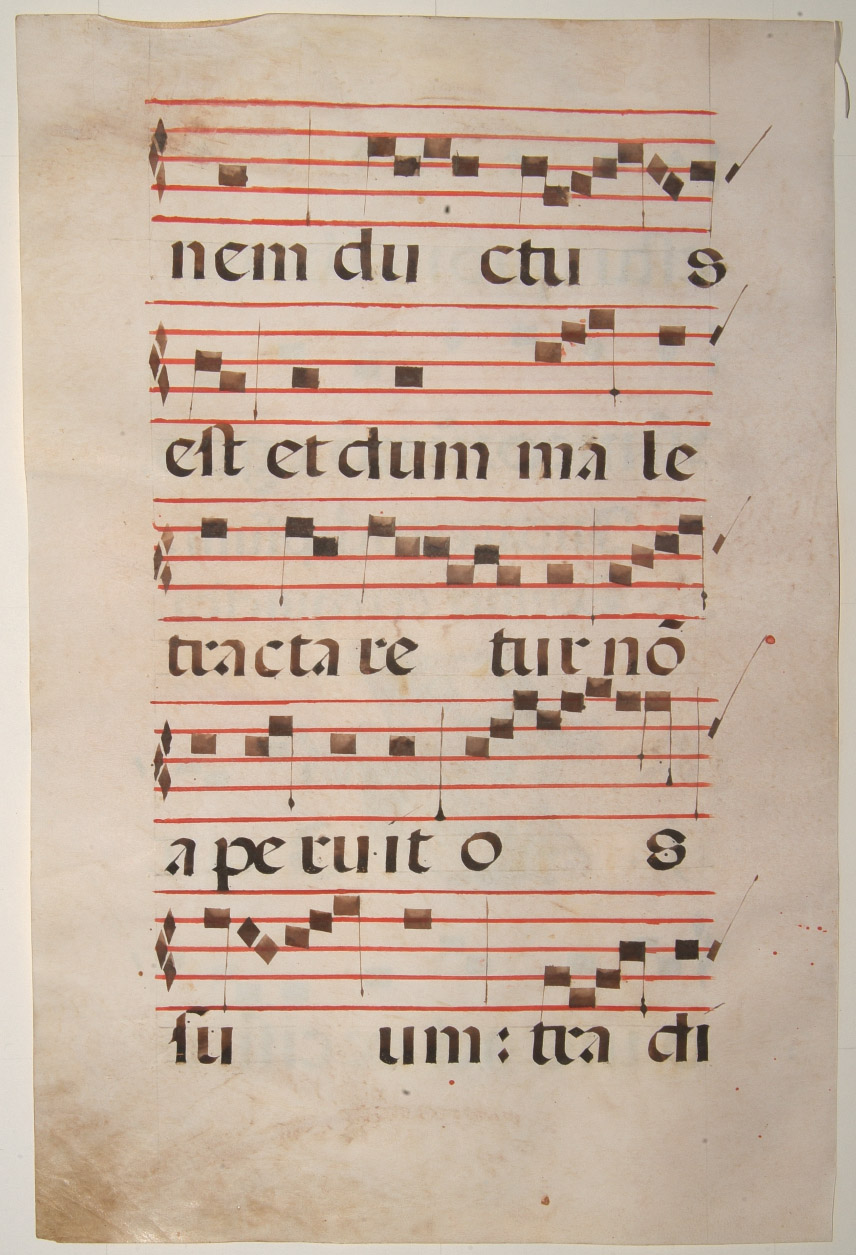 nem du ctu s
est et dum ma le
tracta re tur nō
a pe ru it o s
su um : tra di